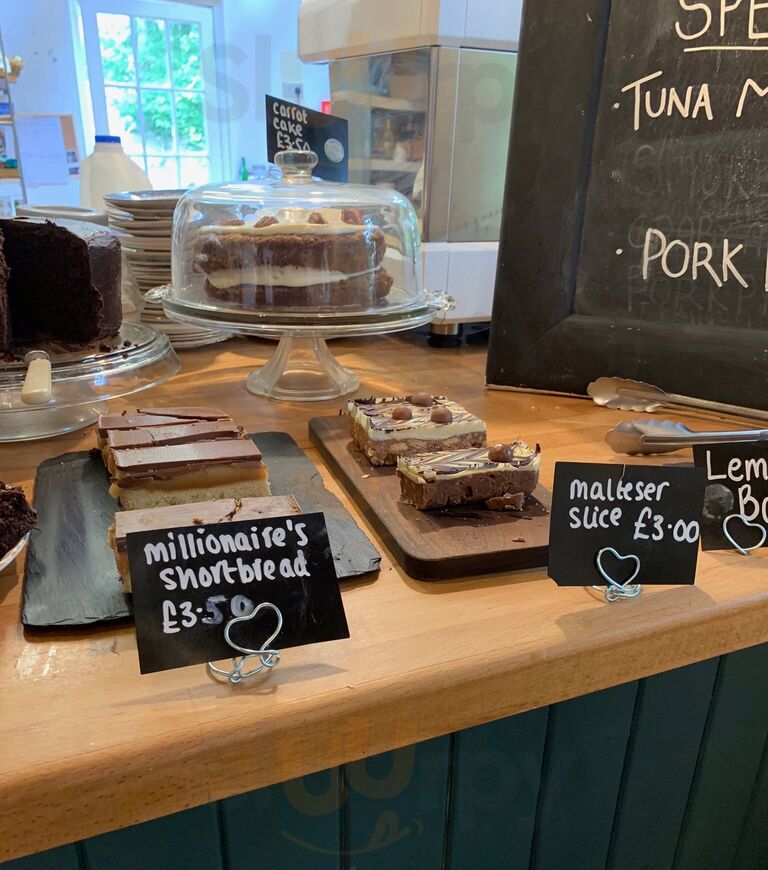 carrot
cake
£3.50
SPE
· TUNA M
· PORK
millionaire's
shortbread
£3.50
malteser
slice £3.00
Lem
Bo
Sluurpy